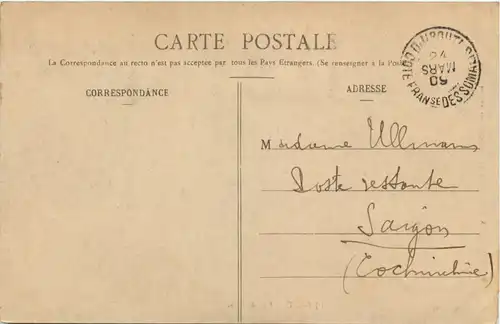 CARTE POSTALE
La Correspondance au recto n'est pas acceptée par tous les Pays Etrangers. (Se renseigner à la Poste
CORRESPONDANCE
ADRESSE
DJIBOUTI
MARS
COTE FRANSE DES SOMALIS
Madame Ullmann
Poste restante
Saigon
(Cochinchine)